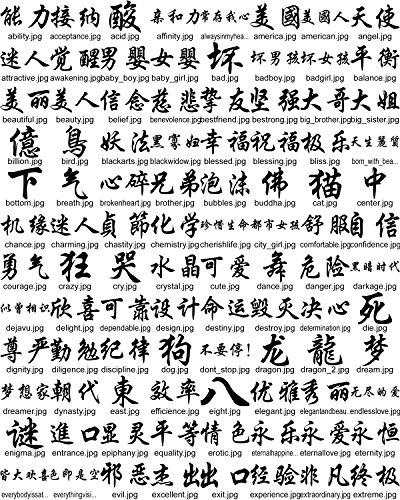 能力 接納 酸 親和力 常存我心 美國 美國人 天使
ability.jpg acceptance.jpg acid.jpg affinity.jpg alwaysinmyhea... america.jpg american.jpg angel.jpg
迷人 觉醒 男嬰 女嬰 坏 坏男孩 坏女孩 平衡
attractive.jpg awakening.jpg baby_boy.jpg baby_girl.jpg bad.jpg badboy.jpg badgirl.jpg balance.jpg
美丽 美人 信念 慈悲 挚友 坚强 大哥 大姐
beautiful.jpg beauty.jpg belief.jpg benevolence.jpg bestfriend.jpg bestrong.jpg big_brother.jpg big_sister.jpg
億 鳥 妖法 黑寡妇 幸福 祝福 极乐 天生麗質
billion.jpg bird.jpg blackarts.jpg blackwidow.jpg blessed.jpg blessing.jpg bliss.jpg born_with_bea...
下 气 心碎 兄弟 泡沫 佛 猫 中
bottom.jpg breath.jpg brokenheart.jpg brother.jpg bubbles.jpg buddha.jpg cat.jpg center.jpg
机缘 迷人 貞節 化学 珍惜生命 都市女孩 舒服 自信
chance.jpg charming.jpg chastity.jpg chemistry.jpg cherishlife.jpg city_girl.jpg comfortable.jpg confidence.jpg
勇气 狂 哭 水晶 可爱 舞 危险 黑暗时代
courage.jpg crazy.jpg cry.jpg crystal.jpg cute.jpg dance.jpg danger.jpg darkage.jpg
似曾相识 欣喜 可靠 设计 命运 毁灭 决心 死
dejavu.jpg delight.jpg dependable.jpg design.jpg destiny.jpg destroy.jpg determination.jpg die.jpg
尊严 勤勉 纪律 狗 不要停! 龙 龍 梦
dignity.jpg diligence.jpg discipline.jpg dog.jpg dont_stop.jpg dragon.jpg dragon_2.jpg dream.jpg
梦想家 朝代 東 效率 八 优雅 秀丽 无尽的爱
dreamer.jpg dynasty.jpg east.jpg efficience.jpg eight.jpg elegant.jpg elegantandbeau... endlesslove.jpg
谜 進口 显灵 平等 情色 永乐 永爱 永恒
enigma.jpg entrance.jpg epiphany.jpg equality.jpg erotic.jpg eternalhappine... eternallove.jpg eternity.jpg
皆大欢喜 色即是空 邪恶 杰出 出口 经验 非凡 终极
everybodyissat... everythingisvi... evil.jpg excellent.jpg exit.jpg experience.jpg extraordinary.jpg extreme.jpg